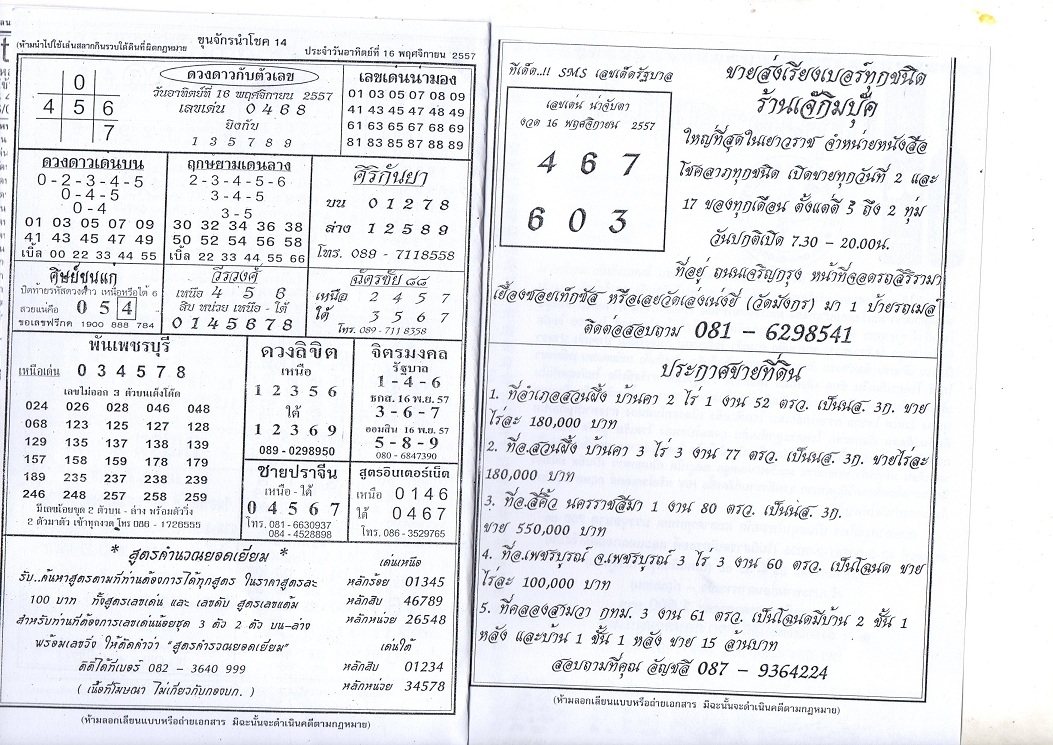 (ห้ามนำไปใช้เล่นสลากกินรวบใต้ดินที่ผิดกฎหมาย ขุนจักรนำโชค 14 ประจำวันอาทิตย์ที่ 16 พฤศจิกายน 2557
0
4 5 6
7
ดวงดาวกับตัวเลข
วันอาทิตย์ที่ 16 พฤศจิกายน 2557
เลขเด่น 0 4 6 8
ยิงกับ
1 3 5 7 8 9
เลขเด่นน่ามอง
01 03 05 07 08 09
41 43 45 47 48 49
61 63 65 67 68 69
81 83 85 87 88 89
ดวงดาวเดนบน
0-2-3-4-5
0-4-5
0-4
01 03 05 07 09
41 43 45 47 49
เบิ้ล 00 22 33 44 55
ฤกษยามเดนลาง
2-3-4-5-6
3-4-5
3-5
30 32 34 36 38
50 52 54 56 58
เบิ้ล 22 33 44 55 66
ศิริกันยา
บน 0 1 2 7 8
ล่าง 1 2 5 8 9
โทร. 089 - 7118558
ศิษย์ขุนแก่
ปิดท้ายรหัสดวงดาว เหนือหรือใต้ 6
สวยแน่คือ 0 5 4
ขอเลขฟรีกด 1900 888 784
วีรวงศ์
เหนือ 4 5 6
สิบ หน่วย เหนือ - ใต้
0 1 4 5 6 7 8
ฉัตรชัย ๘๘
เหนือ 2 4 5 7
ใต้ 3 5 6 7
โทร. 089 - 711 8358
พันเพชรบุรี
เหนือเด่น 0 3 4 5 7 8
เลขไม่ออก 3 ตัวบนแต็งโต๊ด
024 026 028 046 048
068 123 125 127 128
129 135 137 138 139
157 158 159 178 179
189 235 237 238 239
246 248 257 258 259
มีเลขน้อยชุด 2 ตัวบน - ล่าง พร้อมตัววิ่ง
2 ตัวมาตัว เข้าทุกงวด โทร 086 - 1726555
ดวงลิขิต
เหนือ
1 2 3 5 6
ใต้
1 2 3 6 9
089 - 0298950
จิตรมงคล
รัฐบาล
1 - 4 - 6
ธกส. 16 พ.ย. 57
3 - 6 - 7
ออมสิน 16 พ.ย. 57
5 - 8 - 9
080 - 6847390
ชายปราจีน
เหนือ - ใต้
0 4 5 6 7
โทร. 081 - 6630937
084 - 4528898
สูตรอินเตอร์เน็ต
เหนือ 0 1 4 6
ใต้ 0 4 6 7
โทร. 086 - 3529765
* สูตรคำนวณยอดเยี่ยม *
รับ..ค้นหาสูตรตามที่ท่านต้องการได้ทุกสูตร ในราคาสูตรละ
100 บาท ทั้งสูตรเลขเด่น และ เลขดับ สูตรเลขแต้ม
สำหรับท่านที่ต้องการเลขเด่นน้อยชุด 3 ตัว 2 ตัว บน-ล่าง
พร้อมเลขวิ่ง ให้ตัดคำว่า "สูตรคำรวณยอดเยี่ยม"
ติดีได้ที่เบอร์ 082 - 3640 999
( เนื้อที่โฆษณา ไม่เกี่ยวกับกองบก. )
เด่นเหนือ
หลักร้อย 01345
หลักสิบ 46789
หลักหน่วย 26548
เด่นใต้
หลักสิบ 01234
หลักหน่วย 34578
(ห้ามลอกเลียนแบบหรือถ่ายเอกสาร มิฉะนั้นจะดำเนินคดีตามกฎหมาย)
ทีเด็ด..!! SMS เลขเด็ดรัฐบาล
เลขเด่น น่าจับตา
งวด 16 พฤศจิกายน 2557
4 6 7
6 0 3
ขายส่งเรียงเบอร์ทุกชนิด
ร้านเจ๊กิมบุ๊ค
ใหญ่ที่สุดในเยาวราช จำหน่ายหนังสือ
โชคลาภทุกชนิด เปิดขายทุกวันที่ 2 และ
17 ของทุกเดือน ตั้งแต่ตี 5 ถึง 2 ทุ่ม
วันปกติเปิด 7.30 - 20.00น.
ที่อยู่ ถนนเจริญกรุง หน้าที่จอดรถสิริรามา
เยื้องซอยเท็กซัส หรือเลยวัดเล่งเน่งยี่ (วัดมังกร) มา 1 ป้ายรถเมล์
ติดต่อสอบถาม 081 - 6298541
ประกาศขายที่ดิน
1. ที่อำเภอสวนผึ้ง บ้านคา 2 ไร่ 1 งาน 52 ตรว. เป็นนส. 3ก. ขาย
ไร่ละ 180,000 บาท
2. ที่อ.สวนผึ้ง บ้านคา 3 ไร่ 3 งาน 77 ตรว. เป็นนส. 3ก. ขายไร่ละ
180,000 บาท
3. ที่อ.สีคิ้ว นครราชสีมา 1 งาน 80 ตรว. เป็นนส. 3ก.
ขาย 550,000 บาท
4. ที่อ.เพชรบูรณ์ จ.เพชรบูรณ์ 3 ไร่ 3 งาน 60 ตรว. เป็นโฉนด ขาย
ไร่ละ 100,000 บาท
5. ที่คลองสามวา กทม. 3 งาน 61 ตรว. เป็นโฉนดมีบ้าน 2 ชั้น 1
หลัง และบ้าน 1 ชั้น 1 หลัง ขาย 15 ล้านบาท
สอบถามที่คุณ อัญชลี 087 - 9364224
(ห้ามลอกเลียนแบบหรือถ่ายเอกสาร มิฉะนั้นจะดำเนินคดีตามกฎหมาย)